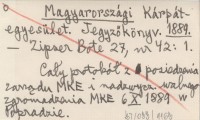 Magyarországi Kárpát-
egyesület. Jegyzőkönyv. 1889.
— Zipser Bote 27, nr 42: 1.
Cały protokół z posiedzenia
zarządu MKE i nadzwycz. walnego
zgromadzenia MKE 6 X 1889 w
Popradzie.